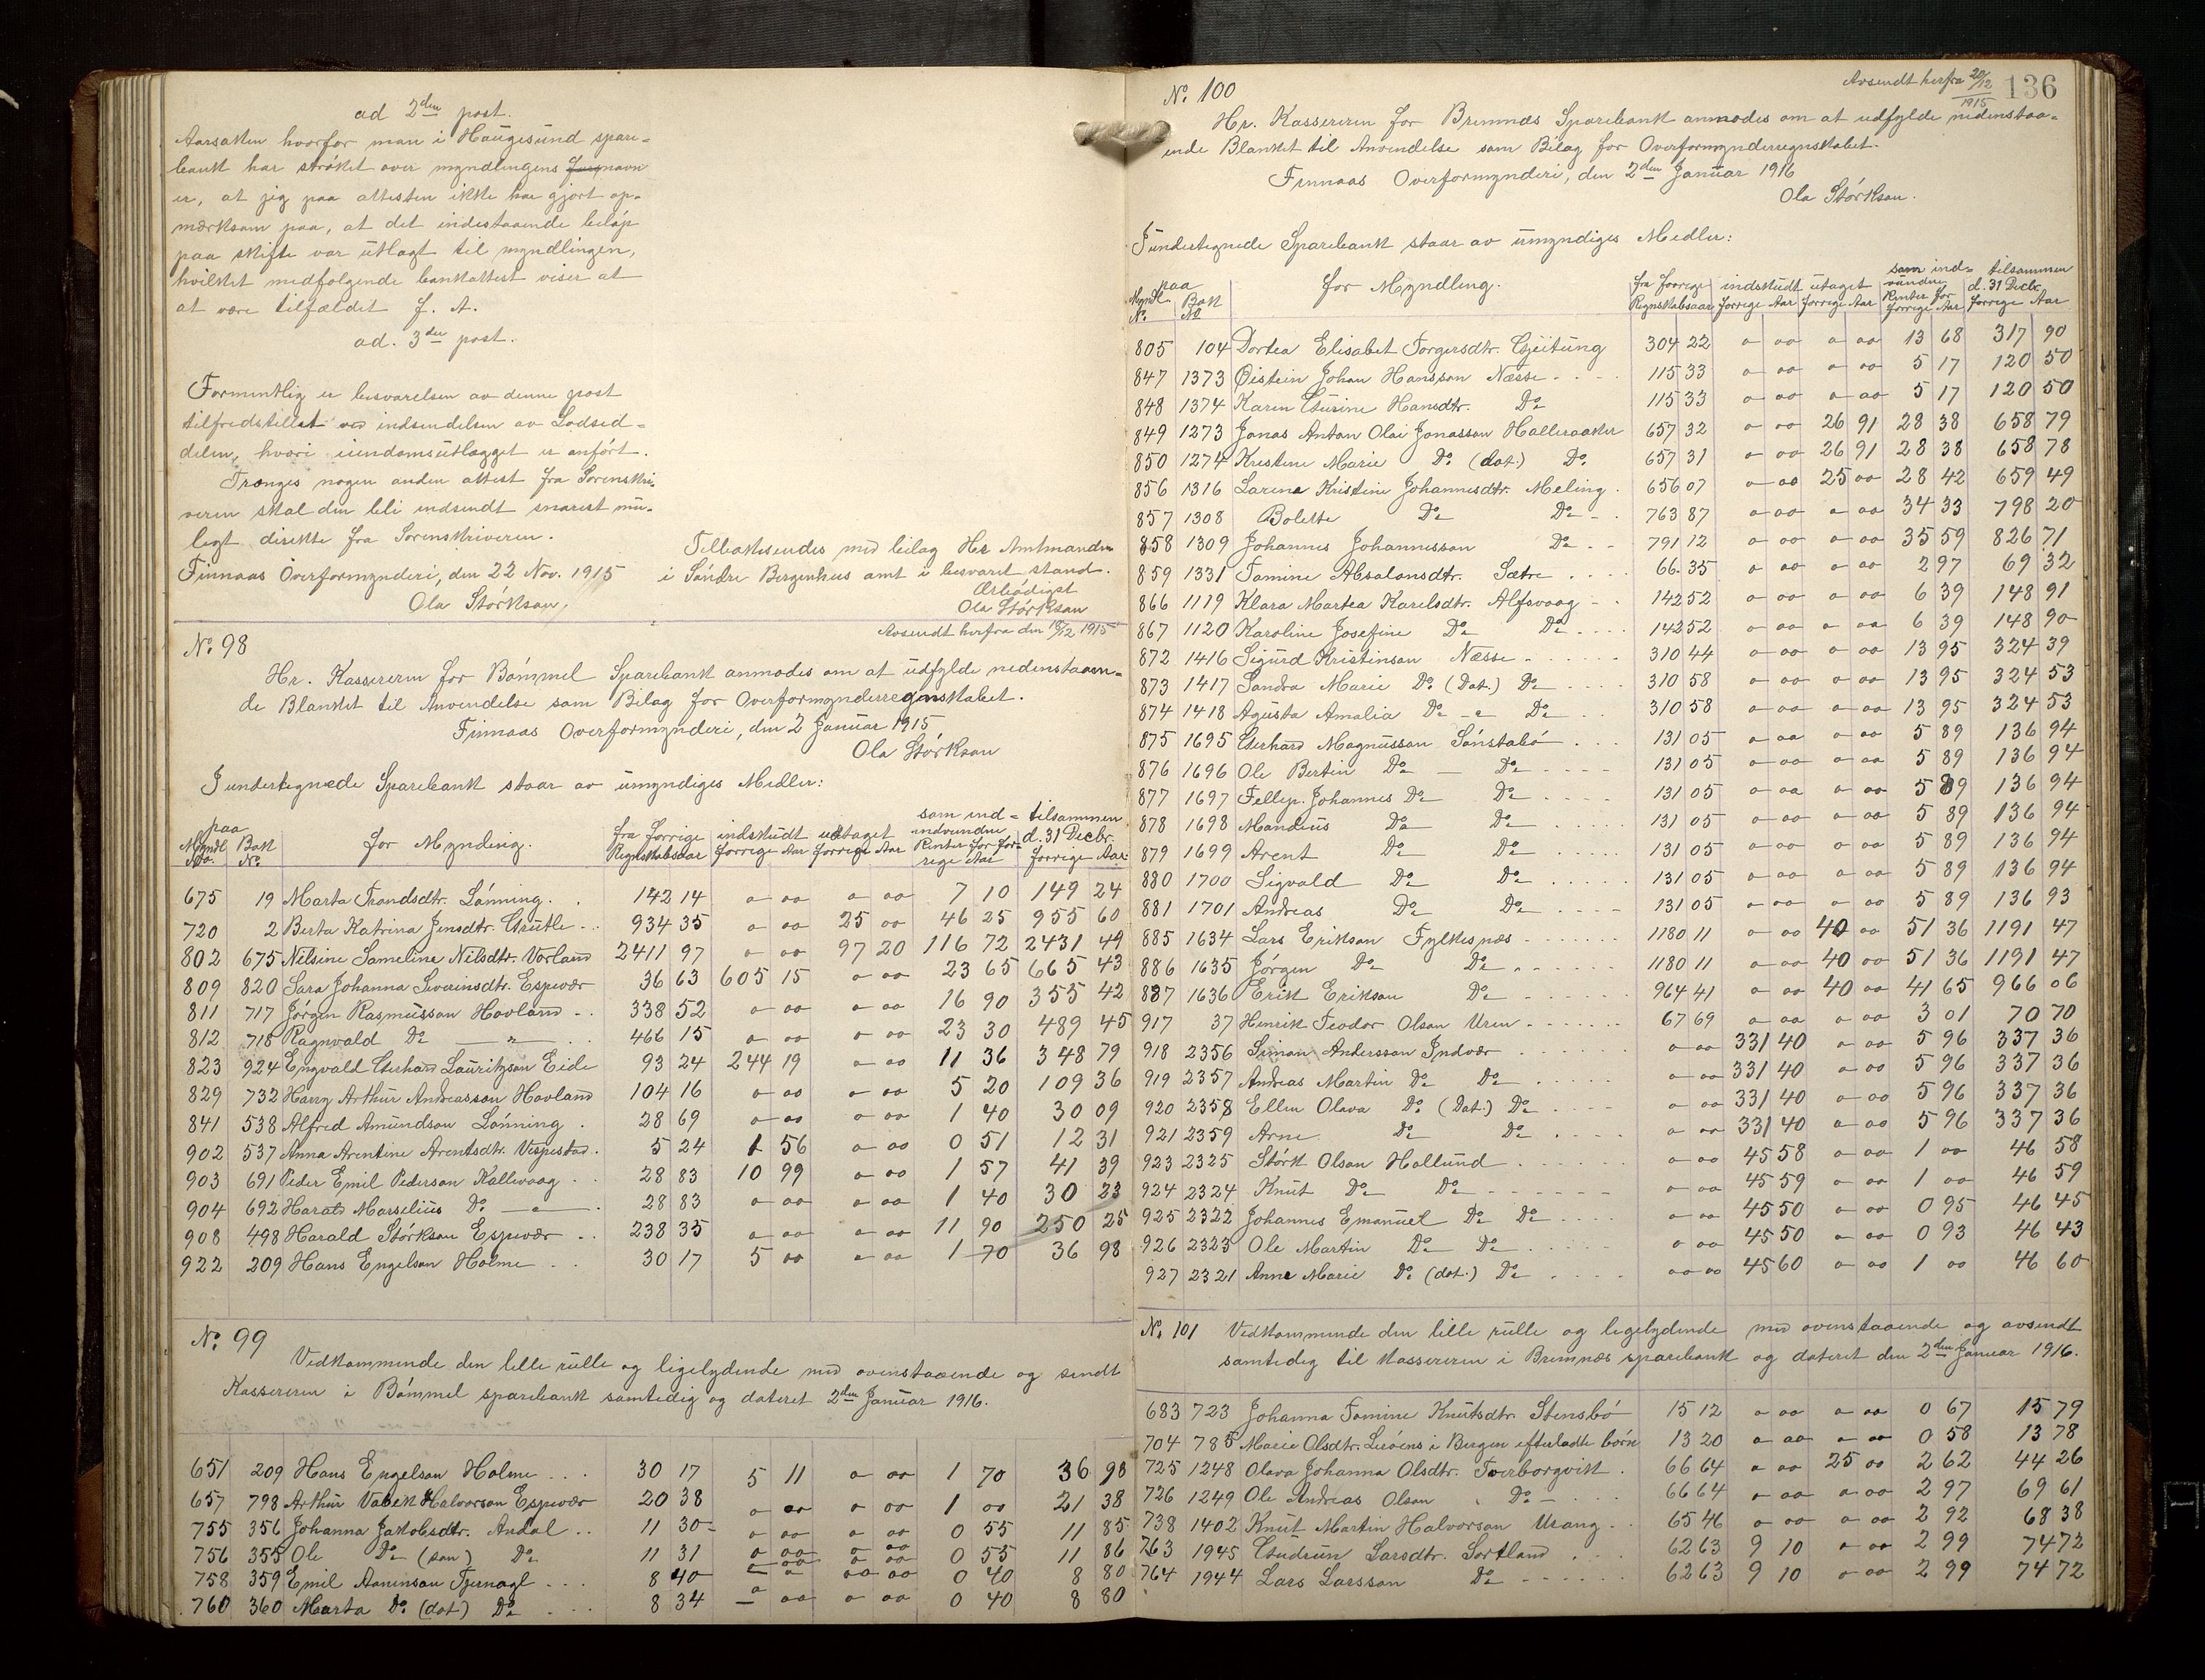 ad 2den post.
Aarsaken hvorfor man i Haugesund spare=
bank har strøket over myndlingens navn
er, at jeg paa attesten ikke har gjort op=
mærksom paa, at det indestaaende beløp
paa skifte var utlagt til myndlingen,
hvilket medfølgende bankattest viser at
at være tilfældet J. A.
ad. 3die post.
Formentlig er besvarelsen av denne post
tilfredstillet ved indsendelsen av Lodsed=
delen, hvori eiendomsutlægget er anført.
Trænges nogen anden attest fra Sorenskri=
veren skal den bli indsendt snarest mu=
ligt direkte fra Sorenskriveren.
Finnaas Overformynderi, den 22 Nov. 1915
Ola Størkson,
Tilbakesendes med bilag Hr Amtmanden
i Søndre Bergenhus amt i besvaret stand.
Ærbødigst
Ola Størkson
Avsendt herfra den 18/12 1915
No. 98
Hr. Kassereren for Bømmel Sparebank anmodes om at udfylde nedenstaaen=
de Blanket til Anvendelse som Bilag for Overformynderregnskabet.
Finnaas Overformynderi, den 2 Januar 1915
Ola Størkson
I undertegnede Sparebank staar av umyndiges Medler:
paa Myndl. No. Bok No. for Mynding. fra forrige Regnskabsaar indskudt forrige Aar udtaget forrige Aar som ind= indvundne Renter for for= rige Aar tilsammen d. 31 Decbr. forrige Aar
675 19 Marta Trondsdtr. Lønning. . 142 14 o oo o oo 7 10 149 24
720 2 Berta Katrina Jensdtr. Grutle . . 934 35 o oo 25 oo 46 25 955 60
802 675 Nilsine Sameline Nilsdtr. Vorland 2411 97 o oo 97 20 116 72 2431 49
809 820 Sara Johanna Severinsdtr. Espevær 36 63 605 15 o oo 23 65 665 43
811 717 Jørgen Rasmussson Hovland . . 338 52 o oo o oo 16 90 355 42
812 718 Ragnvald Do — " — . . 466 15 o oo o oo 23 30 489 45
823 924 Engvald Gerhard Lauritzson Eide 93 24 244 19 o oo 11 36 348 79
829 732 Harry Arthur Andreasson Hovland 104 16 o oo o oo 5 20 109 36
841 538 Alfred Amundson Lønning . 28 69 o oo o oo 1 40 30 09
902 537 Anna Arentine Arentsdtr. Vespestad . 5 24 1 56 o oo 0 51 12 31
903 691 Peder Emil Pederson Kallevaag . . 28 83 10 99 o oo 1 57 41 39
904 692 Harald Marselius Do — " — . 28 83 o oo o oo 1 40 30 23
908 498 Harald Størkson Espevær . . 238 35 o oo o oo 11 90 250 25
922 209 Hans Engelson Holme . . 30 17 5 oo o oo 1 70 36 98
No. 99
Vedkommende den lille rulle og ligelydende med ovenstaaende og sendt
Kassereren i Bømmel sparebank samtedig og dateret 2den Januar 1916.
651 209 Hans Engelson Holme . . . 30 17 5 11 o oo 1 70 36 98
657 798 Arthur Valek Halvorson Espevær 20 38 o oo o oo 1 oo 21 38
755 356 Johanna Jakobsdtr. Andal . . 11 30 o oo o oo 0 55 11 85
756 355 Ole Do (son) Do 11 31 o oo o oo 0 55 11 86
758 359 Emil Aaninson Tjernagl . . . 8 40 o oo oo 0 40 8 80
760 360 Marta Do (dat) Do . . . 8 34 — oo o oo 0 40 8 80
Avsendt herfra 20/12 1915
136
No. 100
Hr. Kassereren for Bremnæs Sparebank anmodes om at udfylde nedenstaa=
ende Blanket til Anvendelse som Bilag for Overformynderregnskabet.
Finnaas Overformynderi, den 2den Januar 1916
Ola Størkson.
I undertegnede Sparebank staar av umyndiges Medler:
paa Myndl. No. Bok No for Myndling. fra forrige Regnskabsaar indskudt forrige Aar utaget forrige Aar som ind= vundne Renter for forrige Aar tilsammen d. 31 Decbr. forrige Aar
805 104 Dortea Elisabet Torgersdtr. Gjeitung 304 22 o oo o oo 13 68 317 90
847 1373 Øistein Johan Hansson Næsse . . . 115 33 o oo o oo 5 17 120 50
848 1374 Karen Gurine Hansdtr. Do 115 33 o oo o oo 5 17 120 50
849 1273 Jonas Anton Olai Jonasson Halleraaker 657 32 o oo 26 91 28 38 658 79
850 1274 Kristine Marie Do (dat.) Do 657 31 o oo 26 91 28 38 658 78
856 1316 Larine Kristine Johannesdtr. Meling . 656 07 o oo 25 oo 28 42 659 49
857 1308 Bolette Do Do . 763 87 o oo o oo 34 33 798 20
858 1309 Johannes Johannesson Do . . 791 12 o oo o oo 35 59 826 71
859 1331 Tomine Absalonsdtr. Sætre . . . . 66 35 o oo o oo 2 97 69 32
866 1119 Klara Martea Karelsdtr. Alfsvaag . . 142 52 o oo o oo 6 39 148 91
867 1120 Karoline Josefine Do Do . . . . 142 52 o oo o oo 6 39 148 90
872 1416 Sigurd Kristinson Næsse . . . . . . 310 44 o oo o oo 13 95 324 39
873 1417 Sandra Marie Do (Dat.) Do . . . . 310 58 o oo o oo 13 95 324 53
874 1418 Agusta Amalia Do — " Do . . . 310 58 o oo o oo 13 95 324 53
875 1695 Gerhard Magnusson Sønstabø . . . 131 05 o oo o oo 5 89 136 94
876 1696 Ole Bertin Do — Do . . . . 131 05 o oo o oo 5 89 136 94
877 1697 Fellep. Johannes Do Do . . . . 131 05 o oo o oo 5 89 136 94
878 1698 Mandius Do Do . . . . 131 05 o oo o oo 5 89 136 94
879 1699 Arent Do Do . . . . . 131 05 o oo o oo 5 89 136 94
880 1700 Sigvald Do Do . . . . . 131 05 o oo o oo 5 89 136 94
881 1701 Andreas Do Do . . . . 131 05 o oo o oo 5 89 136 93
885 1634 Lars Erikson Fylkesnæs . . . . . . . 1180 11 o oo 40 oo 51 36 1191 47
886 1635 Jørgen Do Do . . . . . . . 1180 11 o oo 40 oo 51 36 1191 47
887 1636 Erik Erikson Do . . . . . . 964 41 o oo 40 oo 41 65 966 06
917 37 Henrik Teodor Olson Uren . . . . . . . 67 69 o oo o oo 3 01 70 70
918 2356 Simon Andersson Indvær . . . . . . . o oo 331 40 o oo 5 96 337 36
919 2357 Andreas Martin Do Do . . . . . o oo 331 40 o oo 5 96 337 36
920 2358 Ellen Olava Do (Dat.) Do . . . . o oo 331 40 o oo 5 96 337 36
921 2359 Arne Do Do . . . . o oo 331 40 o oo 5 96 337 36
923 2325 Størk Olson Hollund . . . . . . o oo 45 58 o oo 1 oo 46 58
924 2324 Knut Do Do . . . . . . . o oo 45 59 o oo 1 oo 46 59
925 2322 Johannes Emanuel Do Do . . . . o oo 45 50 o oo 0 95 46 45
926 2323 Ole Martin Do Do . . . . . o oo 45 50 o oo 0 93 46 43
927 2321 Anne Marie Do (dat.) Do . . . . oo oo 45 60 o oo 1 oo 46 60
No. 101 Vedkommende den lille rulle og ligelydende med ovenstaaende og avsendt
samtedeg til kassereren i Bremnæs sparebank og dateret den 2den Januar 1916.
683 723 Johanna Tomine Knutsdtr. Stensbø 15 12 o oo o oo 0 67 15 79
704 785 Marie Olsdtr. Lerøens i Bergen efterladte børn 13 20 o oo o oo 0 58 13 78
725 1248 Olava Johanna Olsdtr. Tverborgvik . 66 64 o oo 25 oo 2 62 44 26
726 1249 Ole Andreas Olson Do . . . . 66 64 o oo o oo 2 97 69 61
738 1402 Knut Martin Halvorson Urang . . 65 46 o oo o oo 2 92 68 38
763 1945 Gudrun Larsdtr. Sortland . . . 62 63 9 10 o oo 2 99 74 72
764 1944 Lars Larsson Do . . . . . . 62 63 9 10 o oo 2 99 74 72